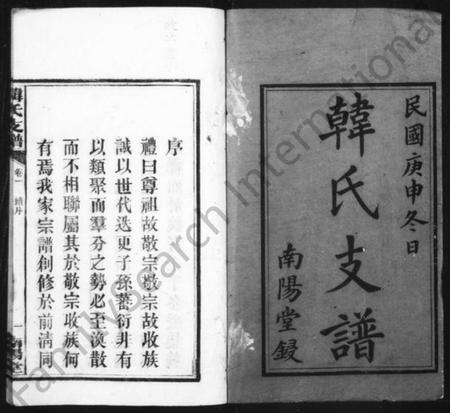 民國庚申冬日
韓氏支譜
南陽堂鋟
序
禮曰尊祖故敬宗敬宗故收族
誠以世代迭更子孫蕃衍非有
以類聚而羣分之勢必至渙散
而不相聯屬其於敬宗收族何
有焉我家宗譜創修於前清同
韓氏支譜
卷一
南陽堂
FamilySearch International